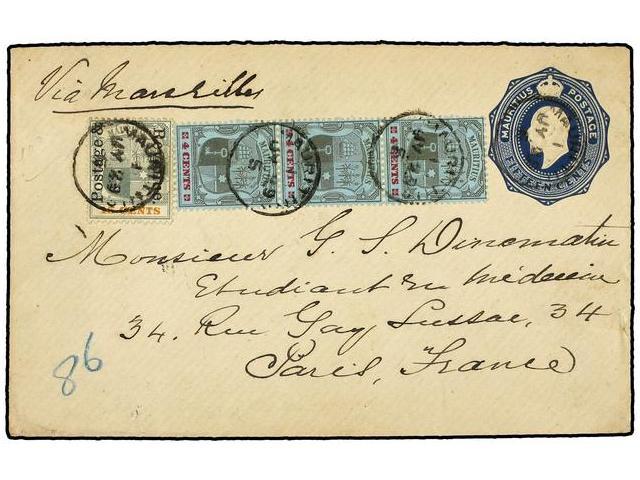 Via Marseilles
Postage &
Re
CENTS
4 CENTS
MAURITIUS
4 CENTS
4 CENTS
MAURITIUS POSTAGE
FIFTEEN CENTS
Monsieur G. S. Dinomatin
Etudiant en Médecine
34. Rue Gay Lussac, 34
Paris, France
86